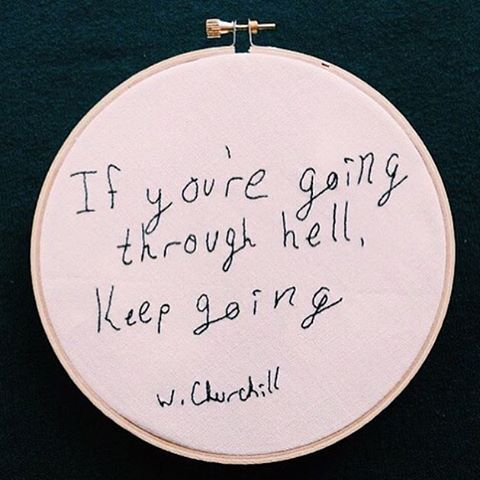 If you're going
through hell,
Keep going
W. Churchill